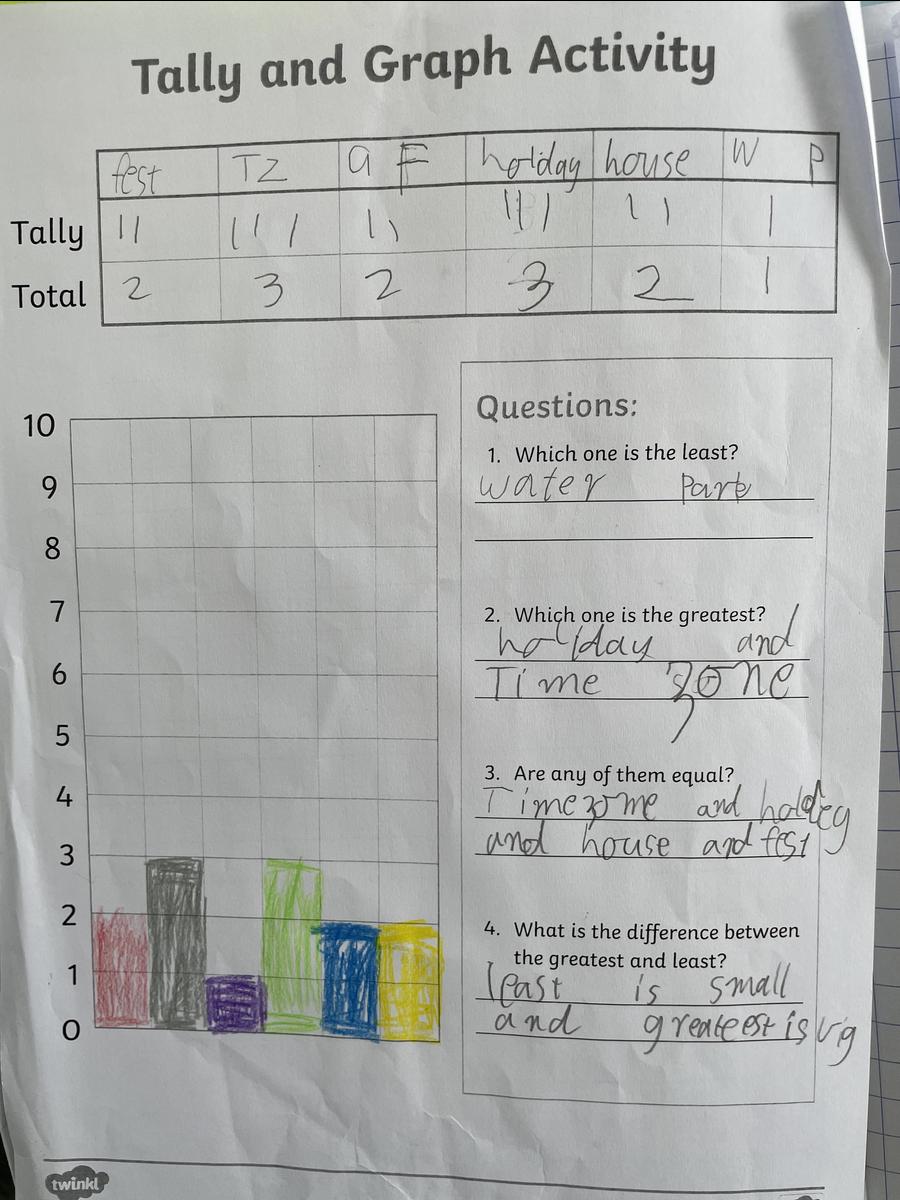 Tally and Graph Activity
fest TZ a F holiday house W P
Tally || ||| || ||| || |
Total 2 3 2 3 2 1
10
9
8
7
6
5
4
3
2
1
0
Questions:
1. Which one is the least?
water Park
2. Which one is the greatest?
holiday and
Time zone
3. Are any of them equal?
Timezome and holdey
and house and fest
4. What is the difference between
the greatest and least?
least is small
and greateest is vig
twinkl